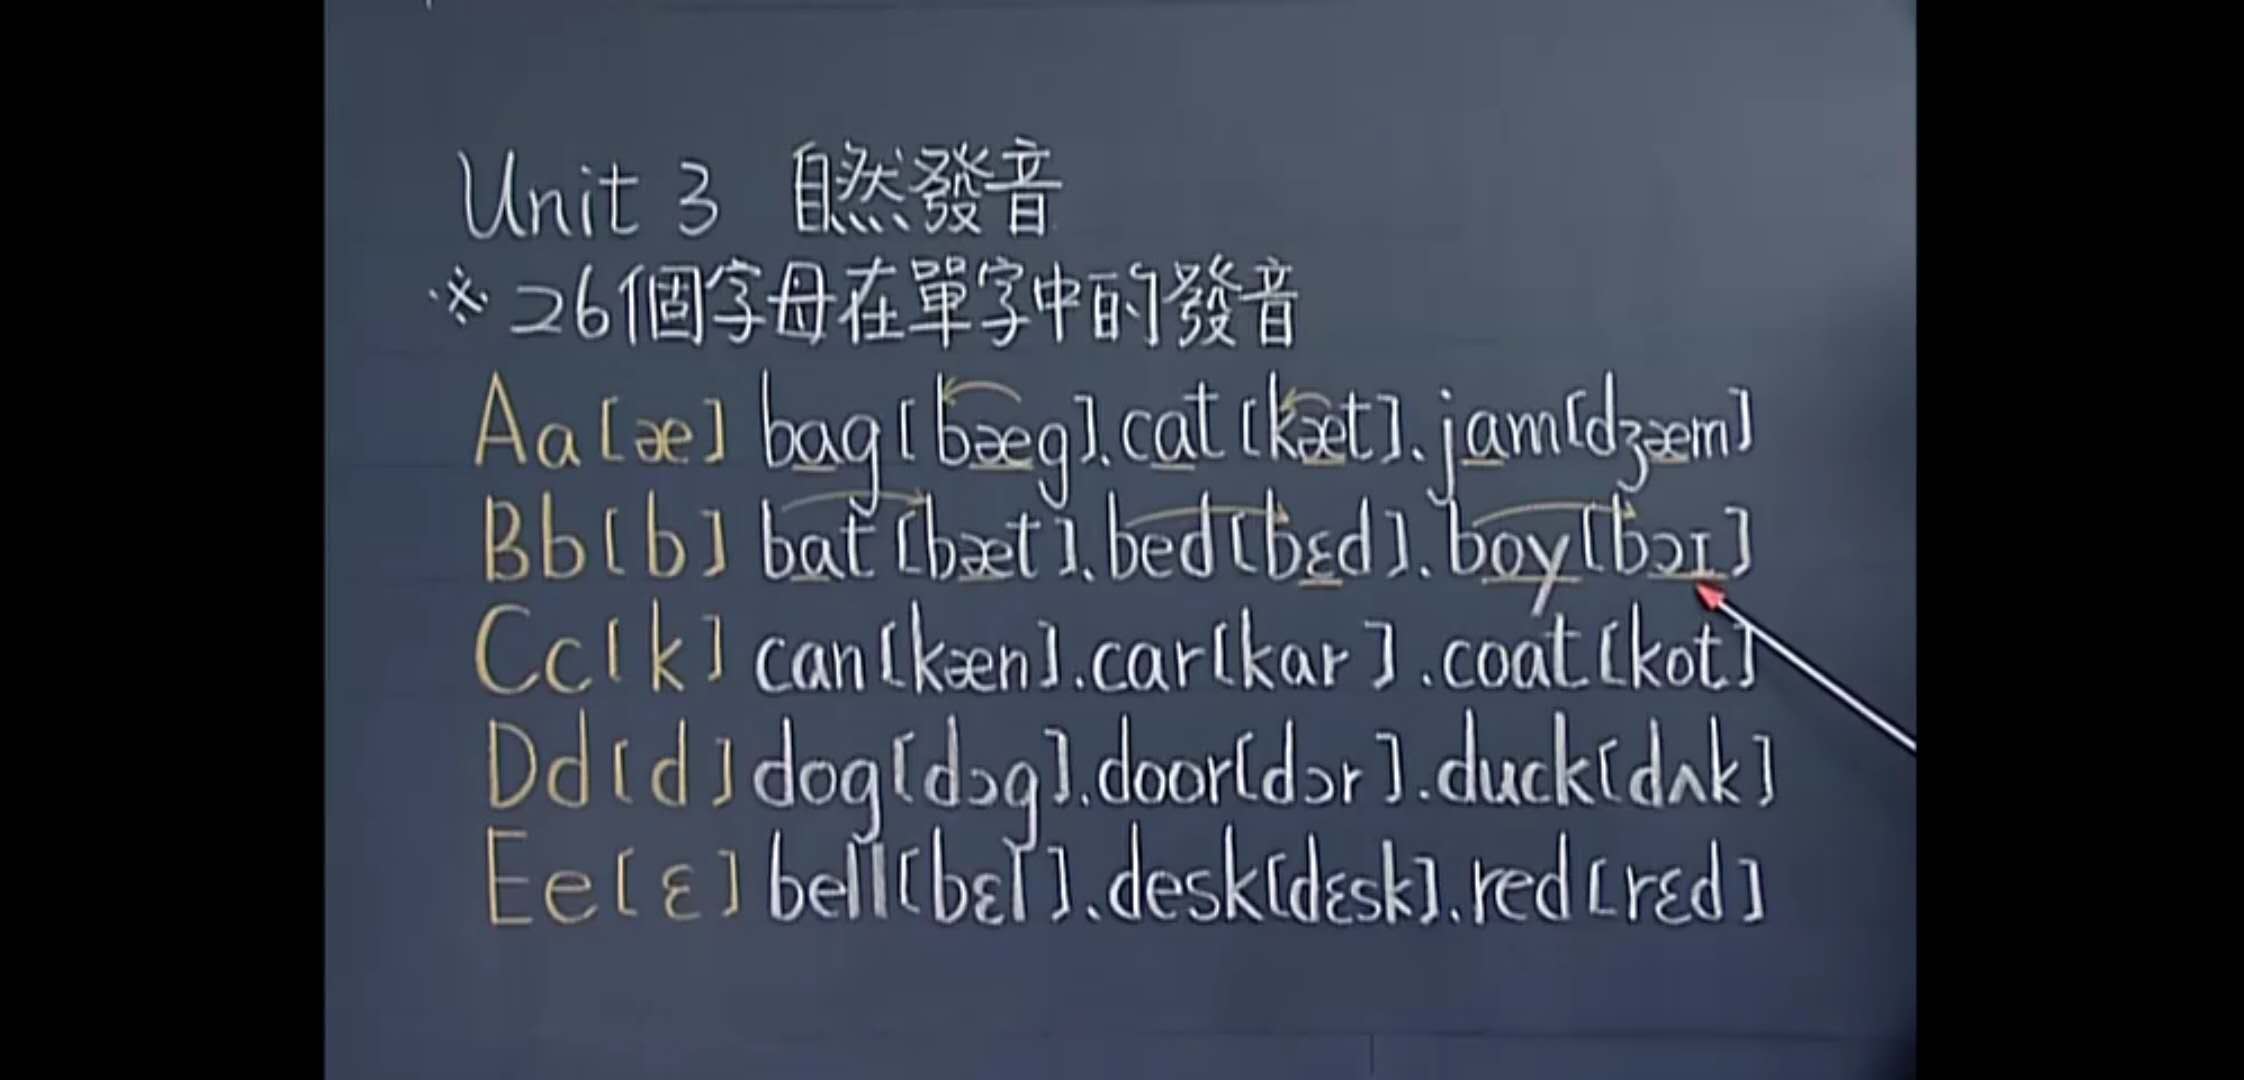 Unit 3 自然發音
※26個字母在單字中的發音
Aa[æ] bag[bæg].cat[kæt].jam[dʒæm]
Bb[b] bat[bæt].bed[bɛd].boy[bɔɪ]
Cc[k] can[kæn].car[kar].coat[kot]
Dd[d] dog[dɔg].door[dɔr].duck[dʌk]
Ee[ɛ] bell[bɛl].desk[dɛsk].red[rɛd]